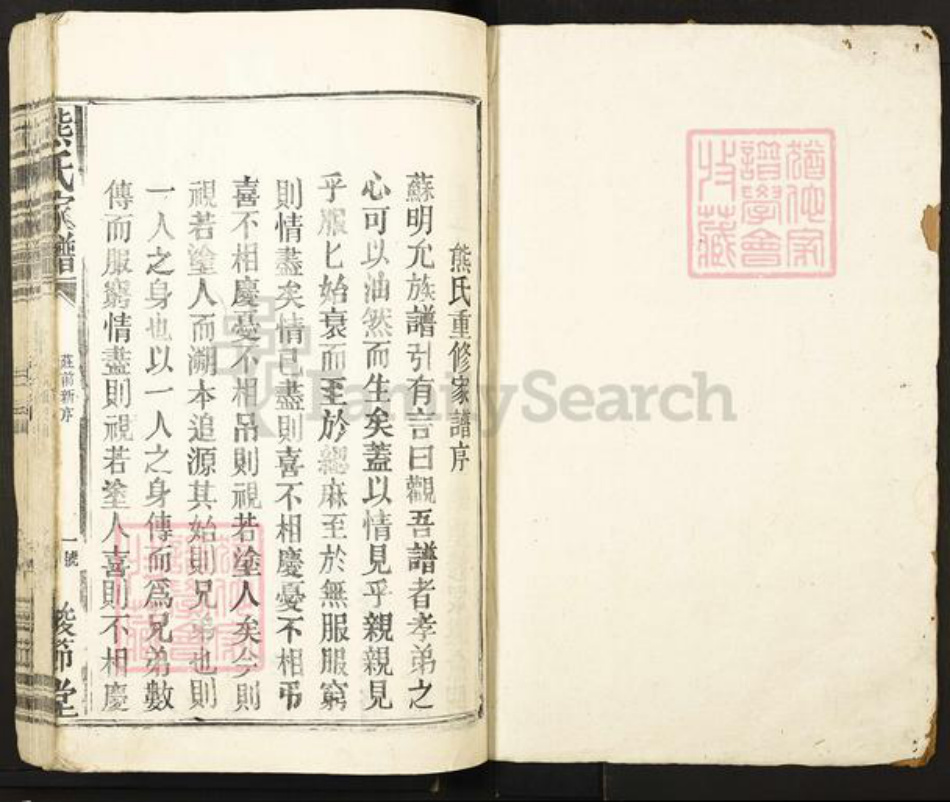 猶他家
譜學會
收藏
熊氏重修家譜序
蘇明允族譜引有言曰觀吾譜者孝弟之
心可以油然而生矣蓋以情見乎親親見
乎服匕始衰而至於緦麻至於無服服窮
則情盡矣情已盡則喜不相慶憂不相弔
喜不相慶憂不相吊則視若塗人矣今則
視若塗人而溯本追源其始則兄弟也則
一人之身也以一人之身傳而爲兄弟數
傳而服窮情盡則視若塗人喜則不相慶
熊氏家譜
莊前新序
一號
堂
FamilySearch